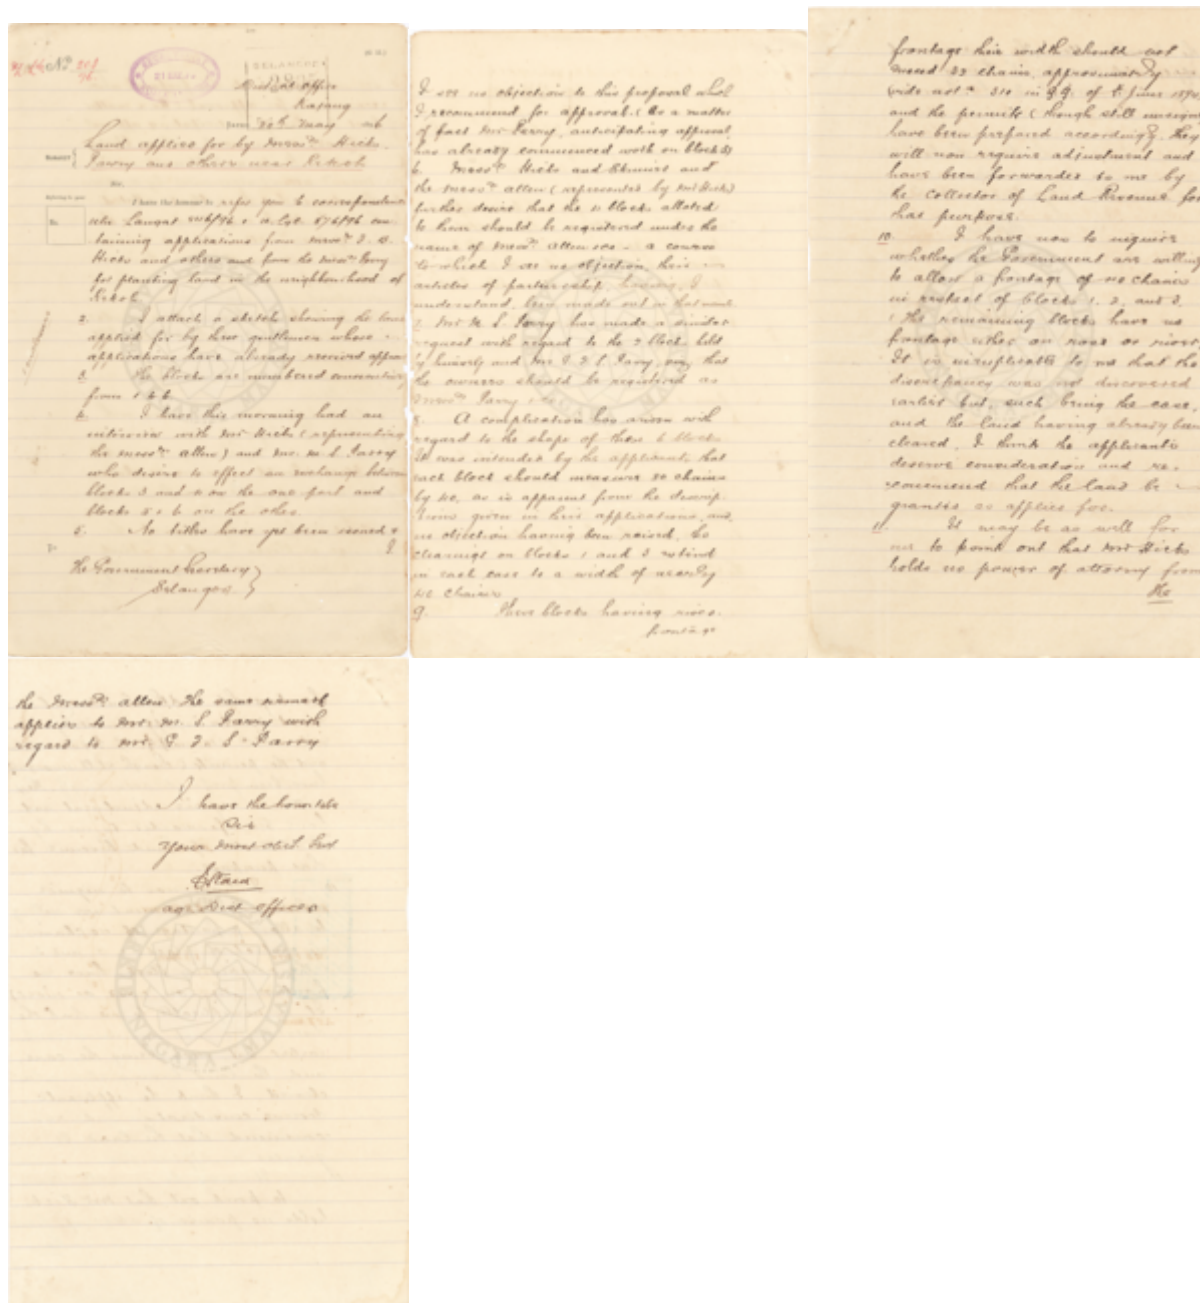 District Office
Kajang
20th May 96
Land applied for by Messrs Hicks,
Parry and others near Kekoh
Sir,
I have the honour to refer you to correspondence
containing applications from Messrs
Hicks and others and from the Messrs Parry
for planting land in the neighbourhood of
2. I attach a sketch shewing the land
applied for by these gentlemen whose
applications have already received approval
3. The blocks are numbered consecutively
from 1 to 6
4. I have this morning had an
interview with Mr Hicks (representing
the Messrs Allen) and Mr. M. S. Parry
who desire to effect an exchange between
blocks 3 and 4 on the one part and
blocks 5 & 6 on the other.
5. No titles have yet been issued &
I
The Government Secretary
Selangor
I see no objection to this proposal which
I recommend for approval. (As a matter
of fact Mr Parry, anticipating approval,
has already commenced work on block 3)
6. Messrs Hicks and and
the Messrs Allen (represented by Mr Hicks)
further desire that the 4 blocks allotted
to them should be registered under the
name of Messrs Allen &co - a course
to which I see no objection, their
articles of partnership having, I
understand, been made out in that name.
7. Mr M. S. Parry has made a similar
request with regard to the 2 blocks held
by himself and Mr G. F. S. Parry, viz that
the owners should be registered as
Messrs Parry & co.
8. A complication has arisen with
regard to the shape of these 6 blocks
It was intended by the applicants that
each block should measure 80 chains
by 40, as is apparent from the descrip
tions given in their applications, and,
no objection having been raised, the
clearings on blocks 1 and 3 extend
in each case to a width of nearly
40 chains
9. These blocks having river
frontage
frontage their width should not
exceed 23 chains, approximately
(vide notn 310 in G.G. of 5 June 1894)
and the permits (though still unsigned)
have been prepared accordingly. They
will now require adjustment and
have been forwarded to me by
the Collector of Land Revenue for
this purpose.
10. I have now to inquire
whether the Government are willing
to allow a frontage of 40 chains
in respect of blocks 1, 2, and 3.
(The remaining blocks have no
frontage either on road or river)
It is inexplicable to me that the
discrepancy was not discovered
earlier but, such being the case,
and the land having already been
cleared, I think the applicants
deserve consideration and re-
commend that the land be
granted as applied for.
11. It may be as well for
me to point out that Mr Hicks
holds no power of attorney from
the
the Messrs Allen. The same remark
applies to Mr. M. S. Parry with
regard to Mr. G F. S. Parry
I have the honor to be
Sir
Your most obdt Servt
ag. Dist Officer